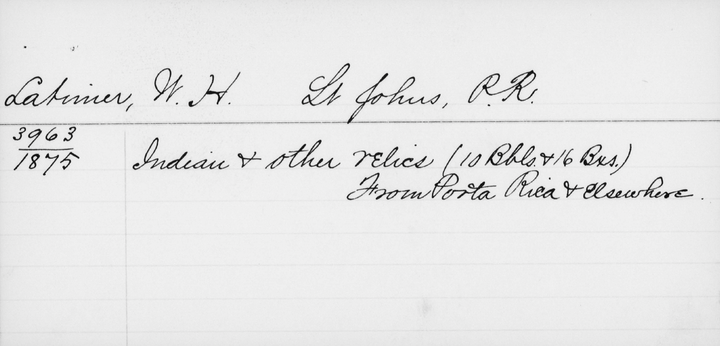 Latimer, W. H. St Johns, P.R.
3963
1875
Indian & other relics (10 Bbls. & 16 Bxs.)
From Porta Rica & elsewhere.